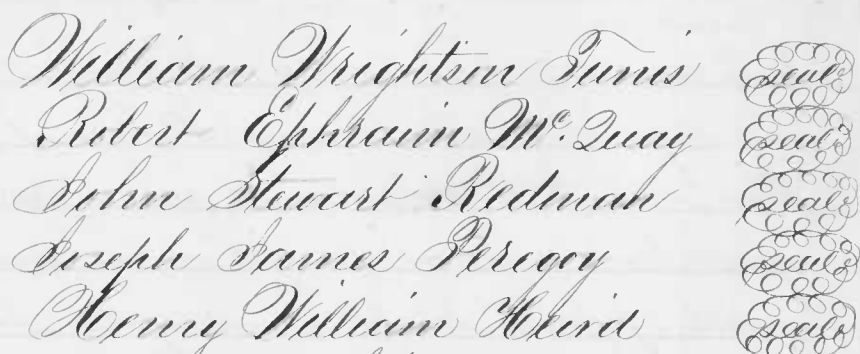 William Wrightson Tunis seal
Robert Ephraim Mc. Quay seal
John Stewart Redman seal
Joseph James Peregoy seal
Henry William Heird seal